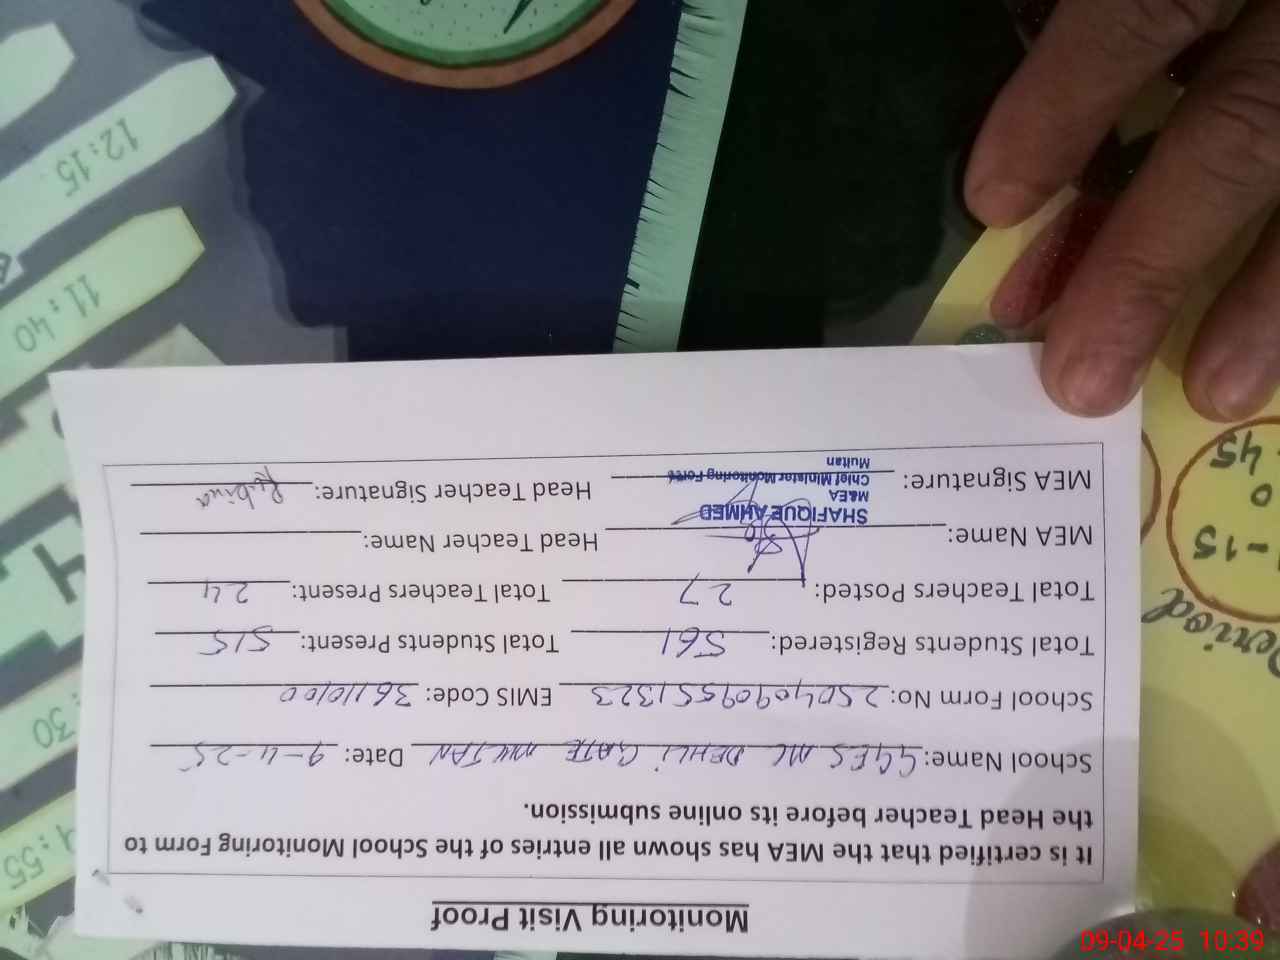 Monitoring Visit Proof
It is certified that the MEA has shown all entries of the School Monitoring Form to
the Head Teacher before its online submission.
School Name: GGES MC DEHLI GATE MULTAN Date: 9-4-25
School Form No: 25040909551323 EMIS Code: 36110100
Total Students Registered: 561 Total Students Present: 515
Total Teachers Posted: 27 Total Teachers Present: 24
MEA Name: Head Teacher Name:
SHAFIQUE AHMED
M&EA
Chief Minister Monitoring Force
Multan
MEA Signature: Head Teacher Signature: Rubina
Period
-15
0
45
:55
:30
4
11:40
12:15
09-04-25 10:39